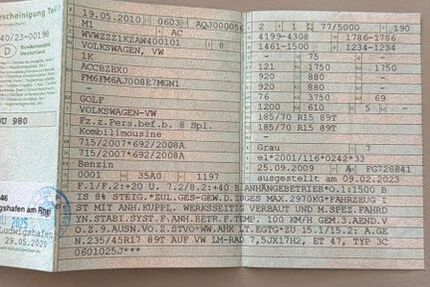 escheinigung Teil I
40/23-00190
D
Bundesrepublik
Deutschland
DU 980
46
igshafen am Rhei
2025
Ludwigshafen
29.05.2020
19.05.2010
0603
AQJ000056
M1
AC
WVWZZZ1KZAW400101
8
VOLKSWAGEN, VW
1K
ACCBZBX0
FM6FM6AJ008E7MGN1
-
GOLF
VOLKSWAGEN-VW
Fz.z.Pers.bef.b. 8 Spl.
Kombilimousine
715/2007*692/2008A
715/2007*692/2008A
Benzin
0001
35A0
1197
2
1
77/5000
190
4199-4308
1786-1786
1461-1500
1234-1234
-
75
-
-
121
1750
1750
920
880
-
920
880
-
76
3750
69
1200
610
5
-
185/70 R15 89T
185/70 R15 89T
-
Grau
7
e1*2001/116*0242*33
25.09.2009
A
FG728841
ausgestellt am 09.02.2023
F.1/F.2:+20 U. 7.2/8.2:+40 B.ANHÄNGEBETRIEB*O.1:1500 B
IS 8% STEIG.*ZUL.GES-GEW.D.ZUGES MAX.2970KG*FAHRZEUG I
ST MIT ANH.KUPPL. WERKSSEITIG VERBAUT UND M.SPEZ.FAHRD
YN.STABI.SYST.F.ANH.BETR.F.TEMP. 100 KM/H GEM.3.AEND.V
O.Z.9.AUSN.VO.Z.STVO*WW.AHK LT.EGTG*ZU 15.1/15.2: A.GE
N.235/45R17 89T AUF VW LM-RAD 7,5JX17H2, ET 47, TYP 3C
0601025J***